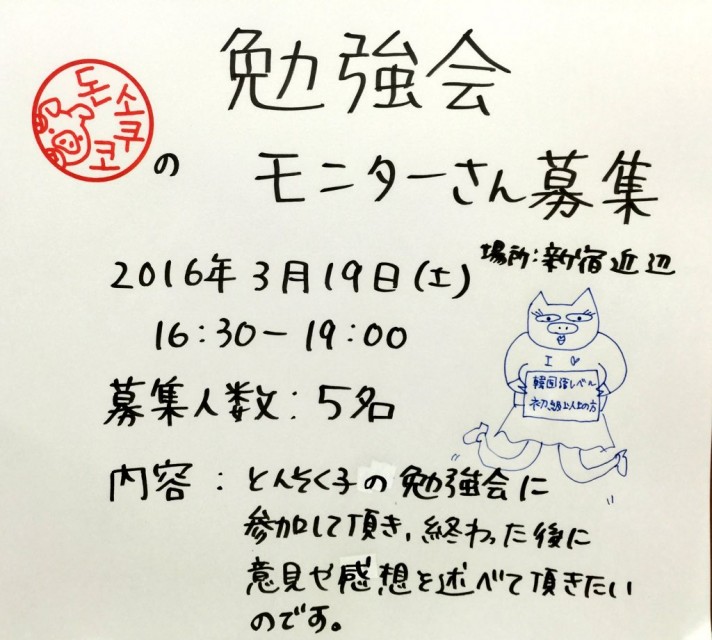 勉強会
돈소쿠코
の モニターさん募集
場所:新宿近辺
2016年3月19日(土)
16:30-19:00
I ♡
韓国語レベル
初級以上の方
募集人数:5名
内容:とんそく子の勉強会に
参加して頂き、終わった後に
意見や感想を述べて頂きたい
のです。